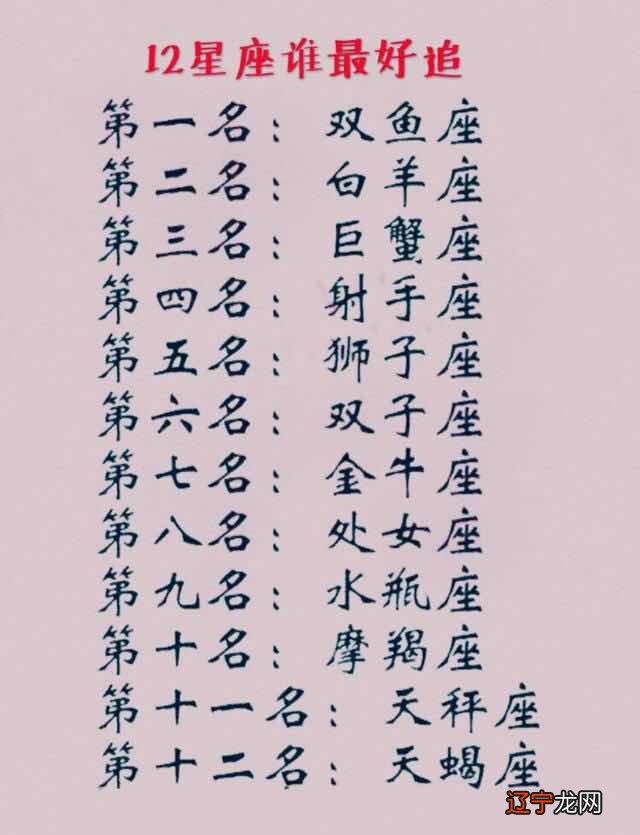 12星座谁最好追
第一名： 双鱼座
第二名： 白羊座
第三名： 巨蟹座
第四名： 射手座
第五名： 狮子座
第六名： 双子座
第七名： 金牛座
第八名： 处女座
第九名： 水瓶座
第十名： 摩羯座
第十一名： 天秤座
第十二名： 天蝎座
辽宁龙网